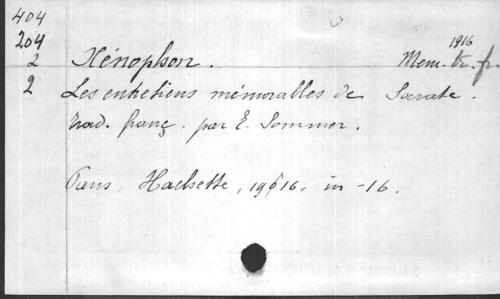 404
204
2 Xénophon. Mem. tr. fr. 1916
2 Les entretiens mémorables de Socrate.
trad. franç. par E. Sommer.
Paris, Hachette, 1916, in-16.